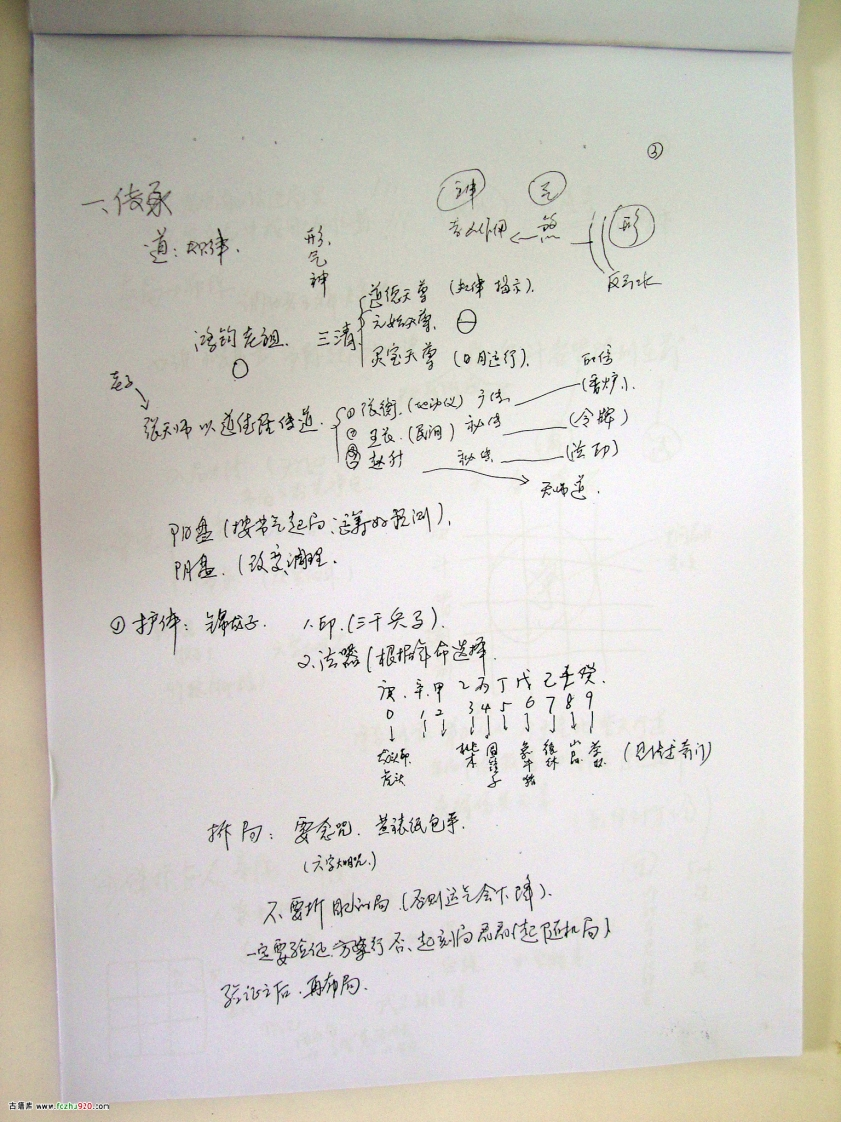 ③
一、传承
神 气 形
煞
道:规律.
形、气、神
反弓水
道德天尊 (规律 揭示).
鸿钧老祖. 三清 元始天尊.
灵宝天尊 (日月运行).
老子
(香炉).
张天师以道德经传道. ① 张衡.(地动仪)
② 王长.(民间) 秘传 (令牌)
③ 赵升 秘传 (法印)
天师道.
阳盘 (按节气起局、运筹好预测).
阴盘. (改变、调理.
① 护体: 1.印.(三千兵马).
2.法器 (根据年命选择.
庚. 辛. 甲 乙 丙 丁 戊 己 壬 癸.
0 1 2 3 4 5 6 7 8 9
拆局: 要念咒. 黄裱纸包平.
(六字大明咒.)
不要拆别人的局.(否则运气会下降).
一定要验证.方案行否、起刻局 (起随机局)
验证之后、再布局.
古籍库 www.fczhu920.com